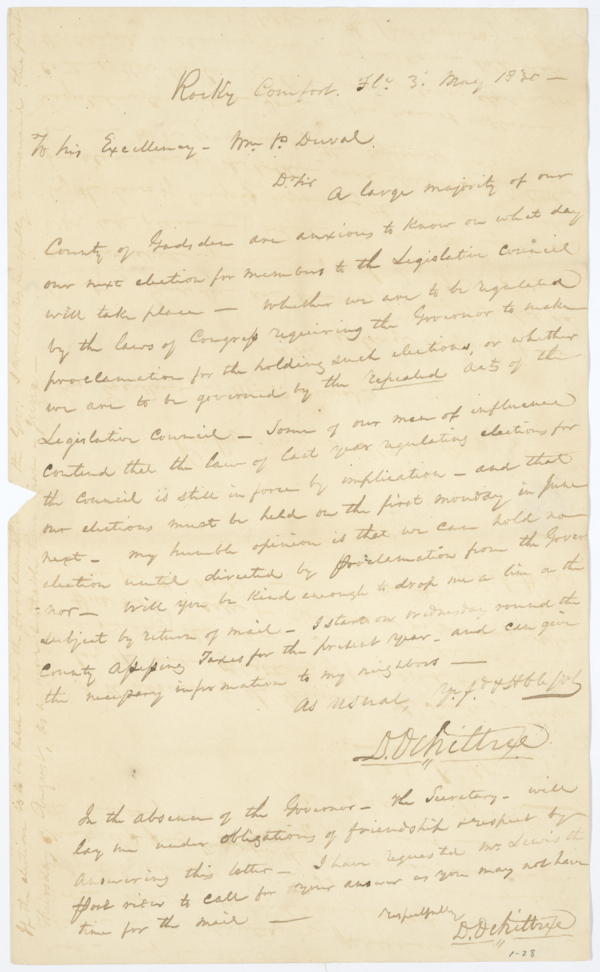 Rocky Comfort. Flo. 3. May 1830 —
To his Excellency — Wm P. Duval.
Dr Sir A large majority of our
County of Gadsden are anxious to know on what day
our next election for members to the Legislative Council
will take place — Whether we are to be regulated
by the laws of Congress requiring the Governor to make
proclamation for the holding such elections, or whether
we are to be governed by the repealed acts of the
Legislative Council — Some of our men of influence
contend that the law of last year regulating elections for
the Council is still in force by implication — and that
our elections must be held on the first Monday in June
next — My humble opinion is that we can hold no
election until directed by proclamation from the Gover
-nor — Will you be kind enough to drop me a line on the
subject by return of mail — I start on Wednesday round the
County assessing Taxes for the present year — and can give
the necessary information to my neighbors —
As usual, Yr. fd. & Hble
In the absence of the Governor — the Secretary — will
lay me under obligations of friendship & respect by
answering this letter — I have requested Mr Lewis the
post rider to call for your answer as you may not have
time for the mail —
respectfully
1-28